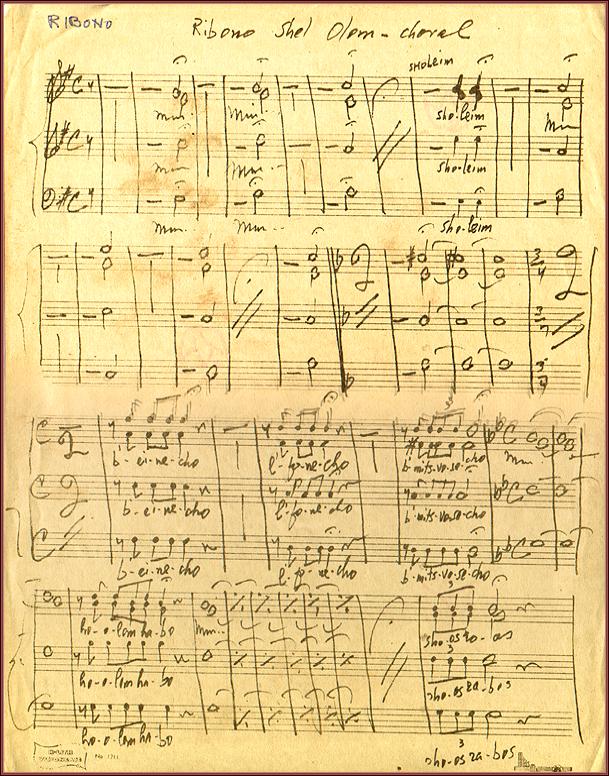 RIBONO
Ribono Shel Olom - choral
sholeim
mm.. mm... sho-leim mm
mm.. mm... sho-leim
mm.. mm... sho-leim
b'-ei-ne-cho l'-fo-ne-cho b'mits-vo-se-cho mm..
b-ei-ne-cho l'-fo-ne-cho b'mits-vose-cho
b-ei-ne-cho l'-fo-ne-cho b'mits-vo-se-cho
ho-o-lom ha-bo mm... sho-os za-
ho-o-lom ha-bo sho-os za-bos
ho-o-lom ha-bo sho-os za-bos